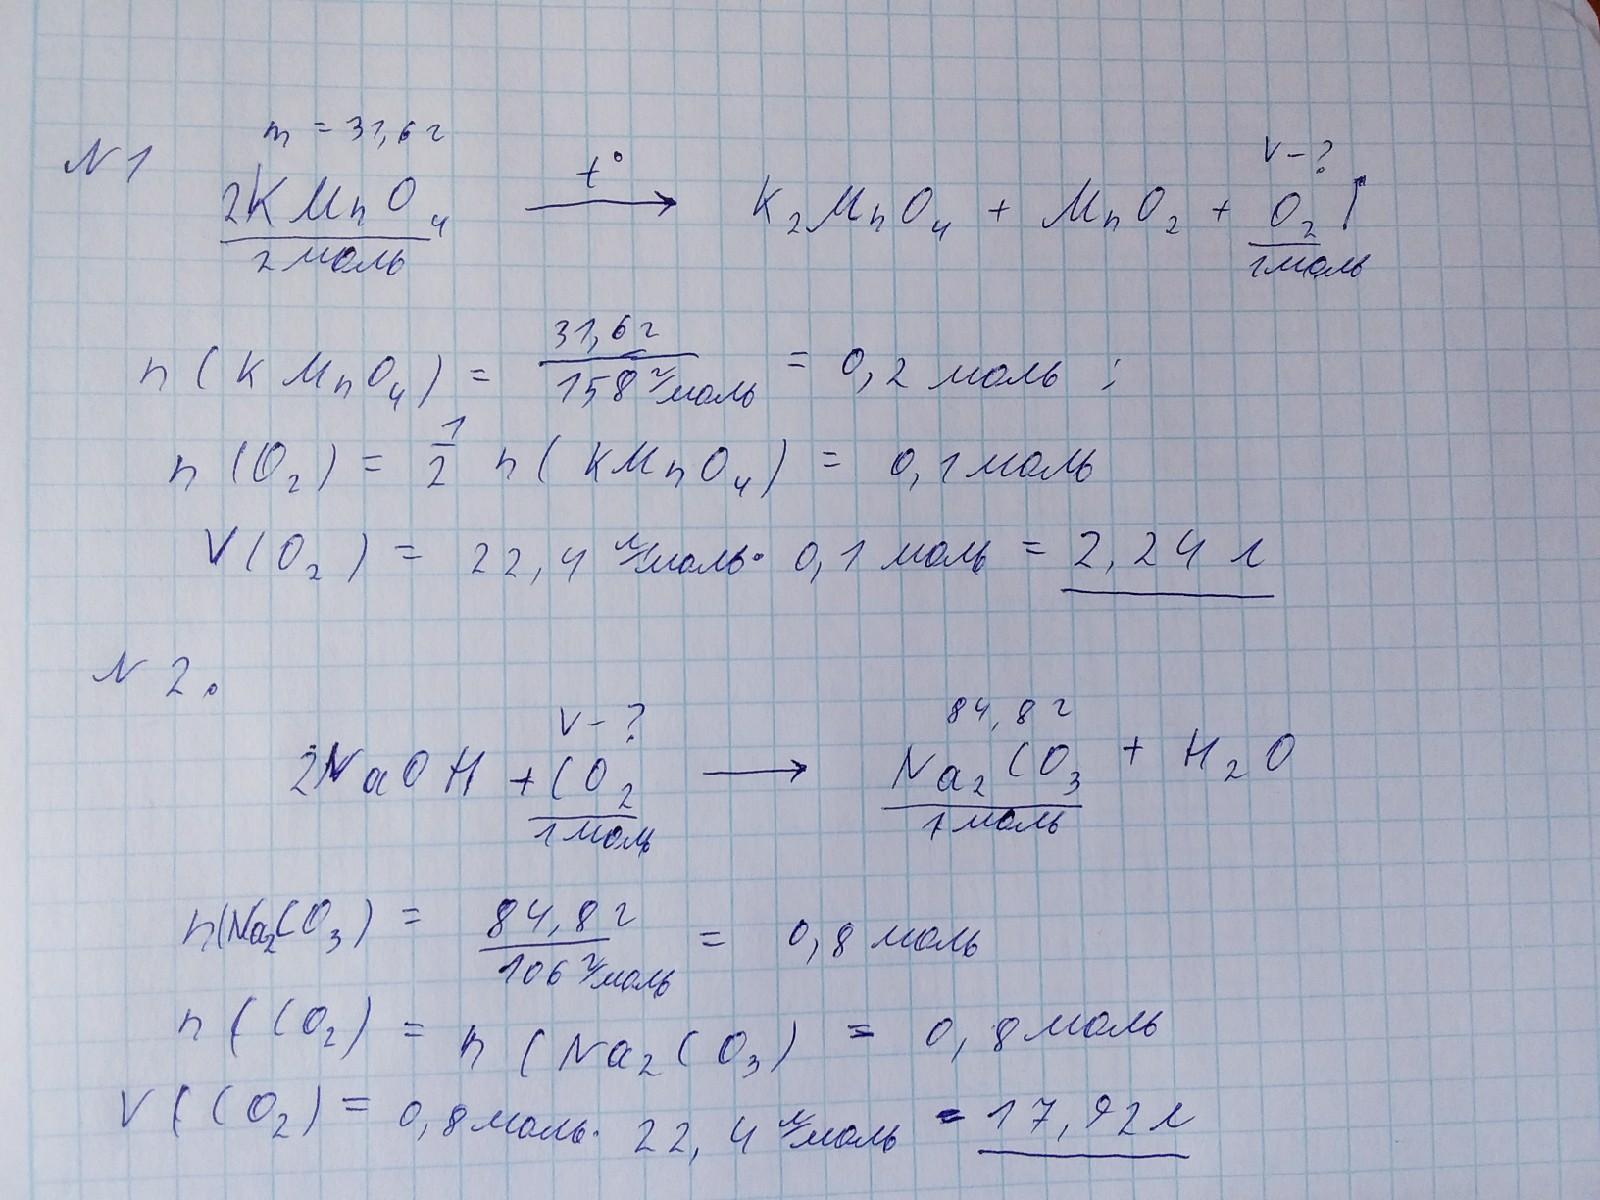 m = 31,6 г
N 1
t° V - ?
2KMnO₄ → K₂MnO₄ + MnO₂ + O₂↑
2 моль 1 моль
n(KMnO₄) = 31,6 г / 158 г/моль = 0,2 моль ;
n(O₂) = 1/2 n(KMnO₄) = 0,1 моль
V(O₂) = 22,4 л/моль · 0,1 моль = 2,24 л
N 2.
V - ? 84,8 г
2NaOH + CO₂ → Na₂CO₃ + H₂O
1 моль 1 моль
n(Na₂CO₃) = 84,8 г / 106 г/моль = 0,8 моль
n(CO₂) = n(Na₂CO₃) = 0,8 моль
V(CO₂) = 0,8 моль · 22,4 л/моль = 17,92 л